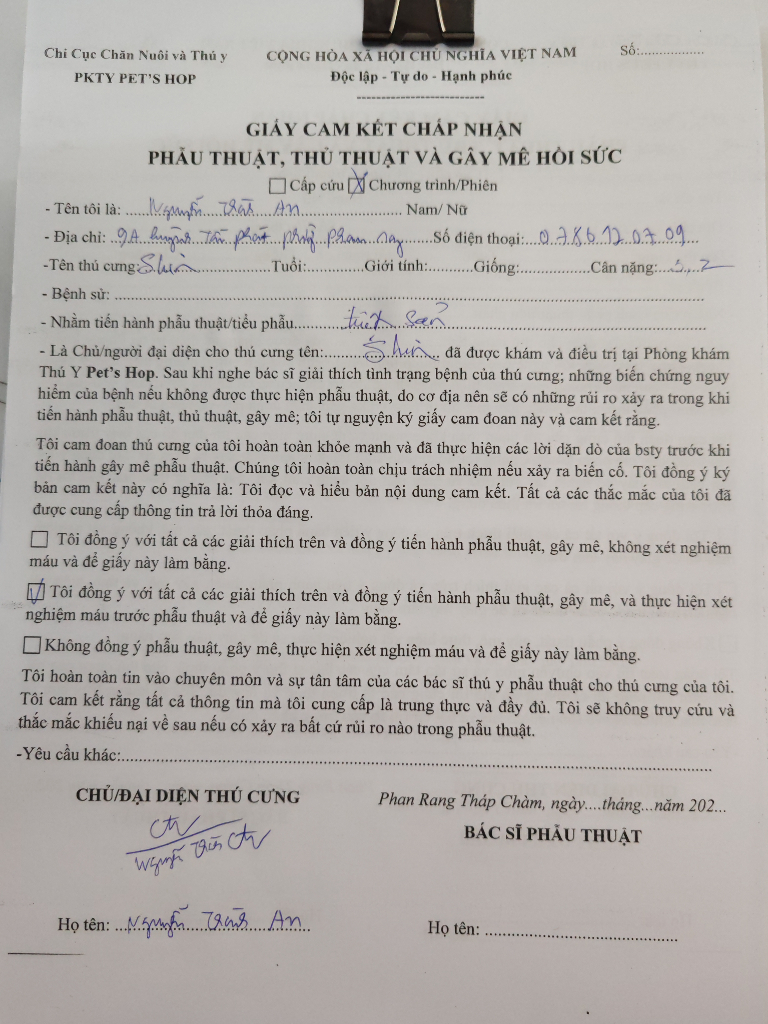 Chi Cục Chăn Nuôi và Thú y
PKTY PET'S HOP
CỘNG HÒA XÃ HỘI CHỦ NGHĨA VIỆT NAM
Độc lập - Tự do - Hạnh phúc
Số:.................
GIẤY CAM KẾT CHẤP NHẬN
PHẪU THUẬT, THỦ THUẬT VÀ GÂY MÊ HỒI SỨC
Cấp cứu Chương trình/Phiên
- Tên tôi là: Nguyễn An Nam/ Nữ
- Địa chỉ: 9A Tấn Phát Số điện thoại: 0786120709
-Tên thú cưng: Shin Tuổi: Giới tính: Giống: Cân nặng: 2
- Bệnh sử:
- Nhằm tiến hành phẫu thuật/tiểu phẫu triệt sản
- Là Chủ/người đại diện cho thú cưng tên: Shin đã được khám và điều trị tại Phòng khám
Thú Y Pet's Hop. Sau khi nghe bác sĩ giải thích tình trạng bệnh của thú cưng; những biến chứng nguy
hiểm của bệnh nếu không được thực hiện phẫu thuật, do cơ địa nên sẽ có những rủi ro xảy ra trong khi
tiến hành phẫu thuật, thủ thuật, gây mê; tôi tự nguyện ký giấy cam đoan này và cam kết rằng.
Tôi cam đoan thú cưng của tôi hoàn toàn khỏe mạnh và đã thực hiện các lời dặn dò của bsty trước khi
tiến hành gây mê phẫu thuật. Chúng tôi hoàn toàn chịu trách nhiệm nếu xảy ra biến cố. Tôi đồng ý ký
bản cam kết này có nghĩa là: Tôi đọc và hiểu bản nội dung cam kết. Tất cả các thắc mắc của tôi đã
được cung cấp thông tin trả lời thỏa đáng.
Tôi đồng ý với tất cả các giải thích trên và đồng ý tiến hành phẫu thuật, gây mê, không xét nghiệm
máu và để giấy này làm bằng.
Tôi đồng ý với tất cả các giải thích trên và đồng ý tiến hành phẫu thuật, gây mê, và thực hiện xét
nghiệm máu trước phẫu thuật và để giấy này làm bằng.
Không đồng ý phẫu thuật, gây mê, thực hiện xét nghiệm máu và để giấy này làm bằng.
Tôi hoàn toàn tin vào chuyên môn và sự tân tâm của các bác sĩ thú y phẫu thuật cho thú cưng của tôi.
Tôi cam kết rằng tất cả thông tin mà tôi cung cấp là trung thực và đầy đủ. Tôi sẽ không truy cứu và
thắc mắc khiếu nại về sau nếu có xảy ra bất cứ rủi ro nào trong phẫu thuật.
-Yêu cầu khác:
CHỦ/ĐẠI DIỆN THÚ CƯNG
Nguyễn
Họ tên: Nguyễn An
Phan Rang Tháp Chàm, ngày....tháng...năm 202...
BÁC SĨ PHẪU THUẬT
Họ tên: